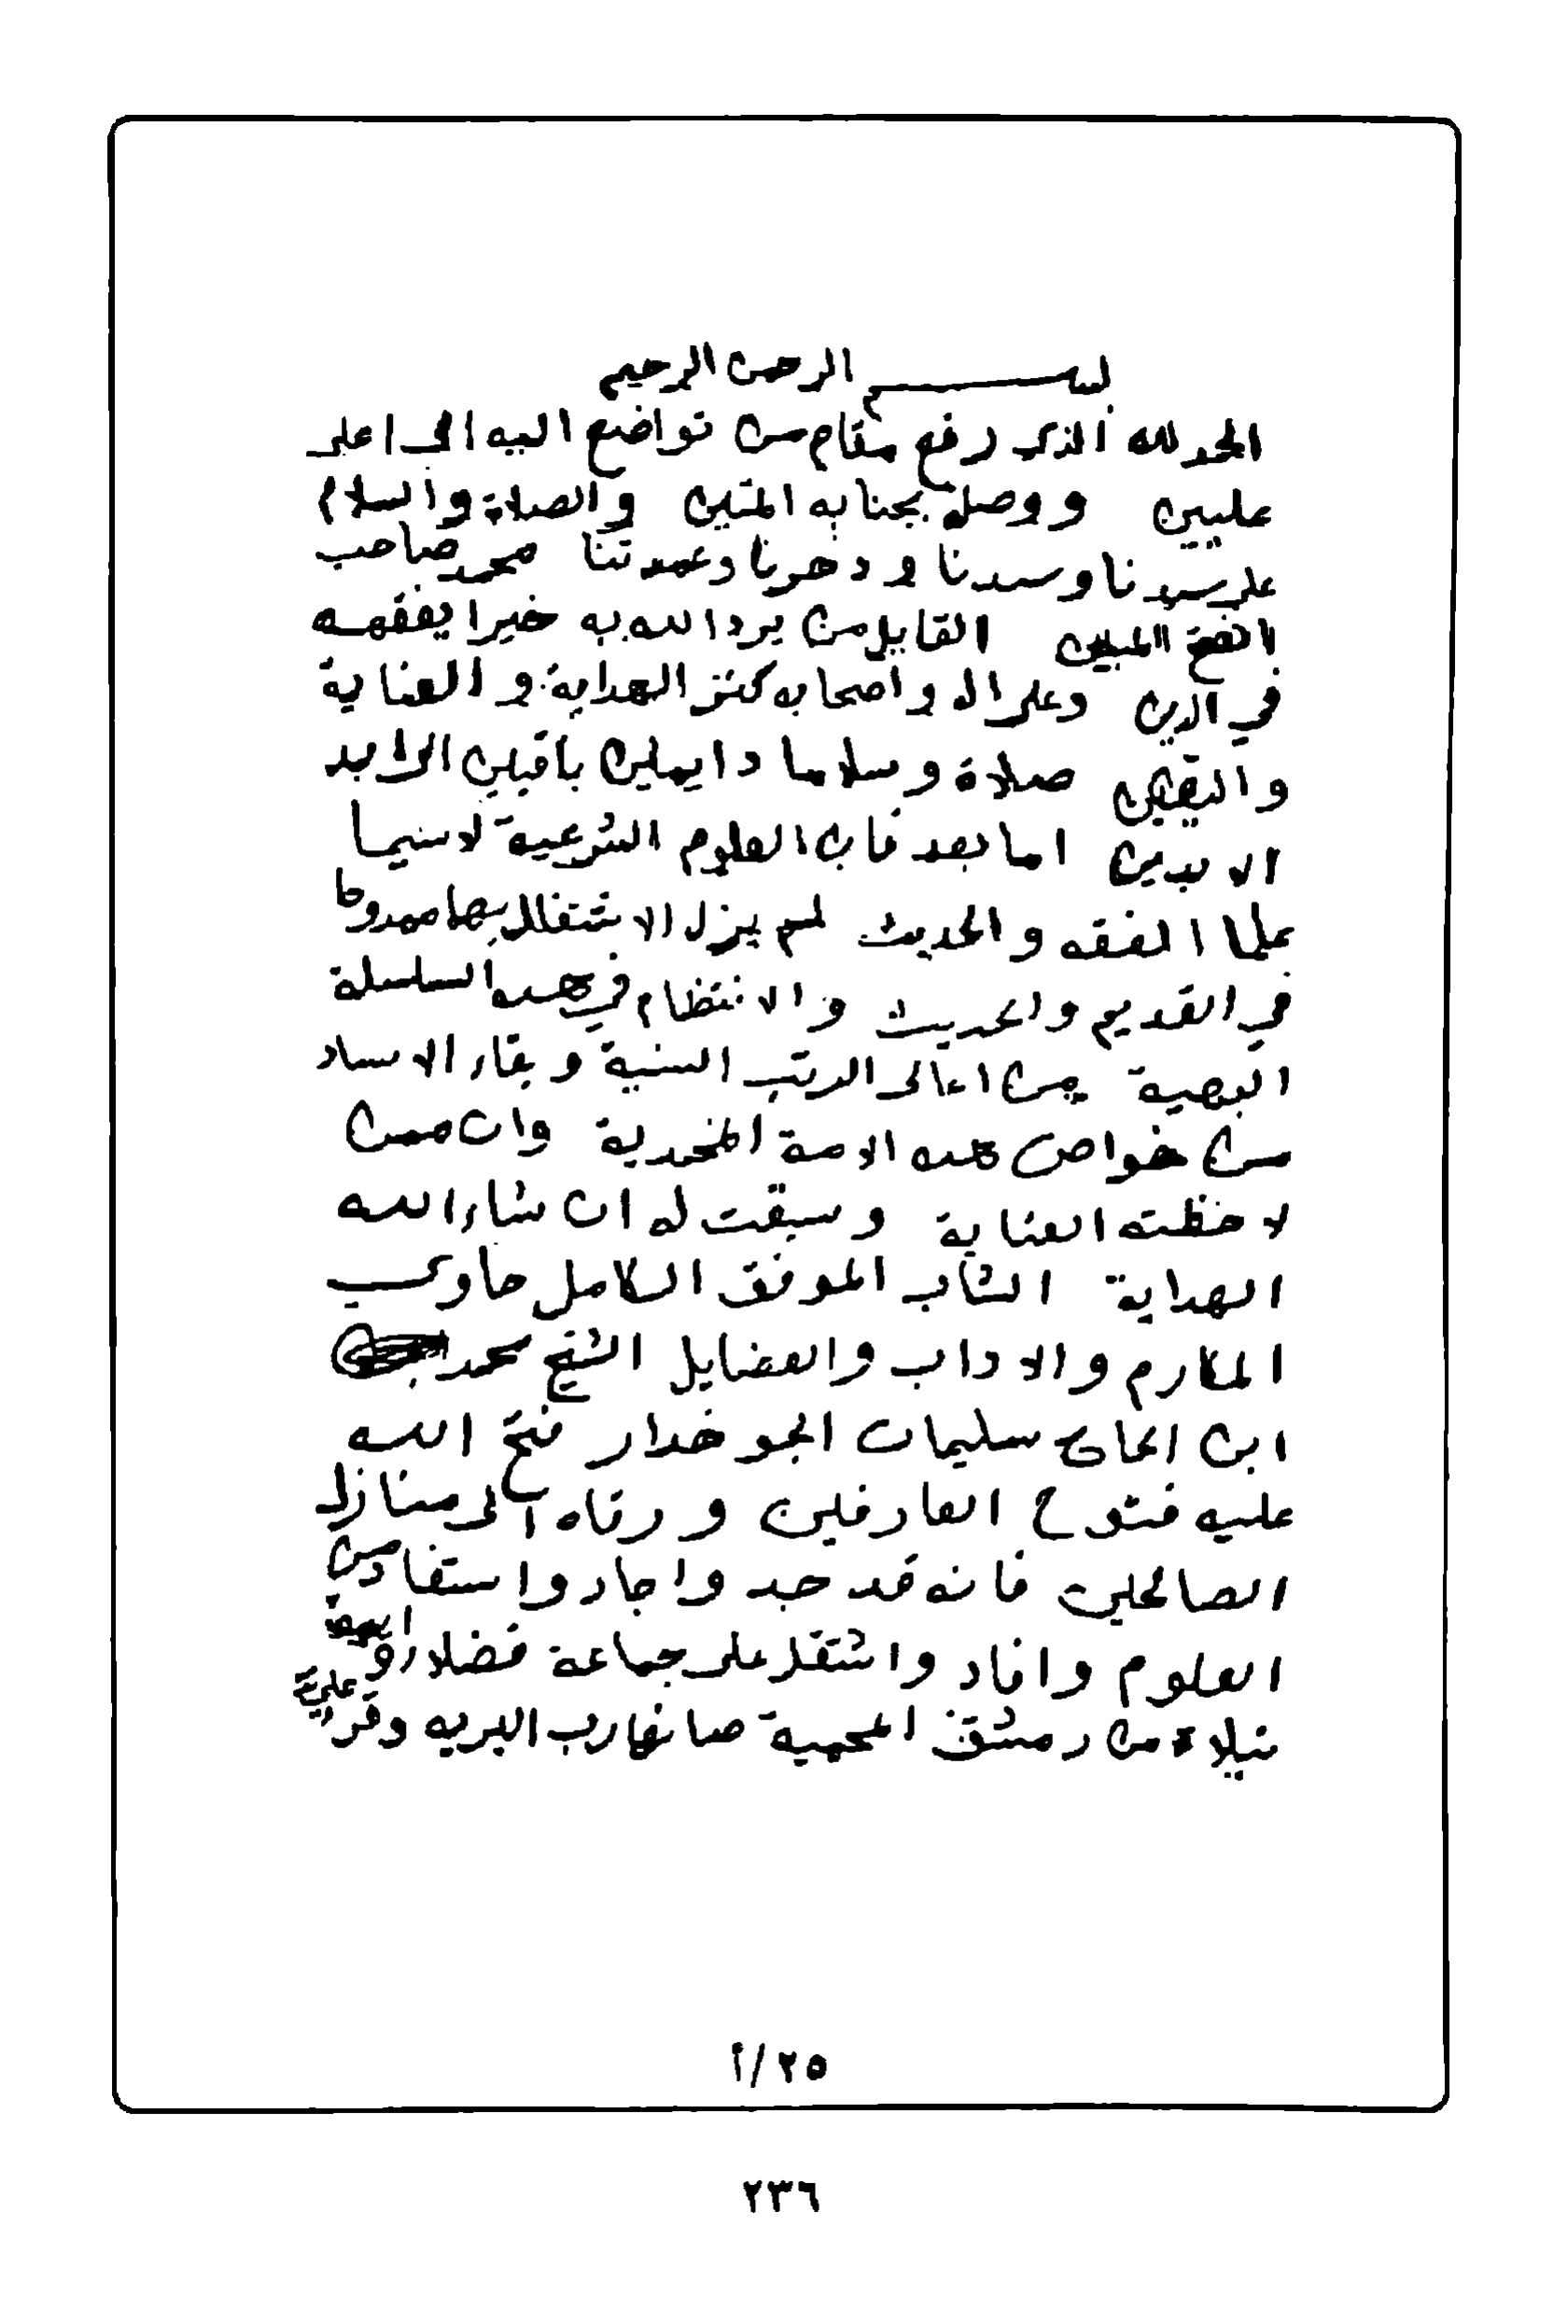 بسم الرحمن الرحيم
الحمد لله الذي رفع مقام من تواضع اليه الى اعلى
عليين ووصل بجنابه المتين والصلاة والسلام
على سيدنا وسندنا وذخرنا وعمدتنا محمد صاحب
الفتح المبين القايل من يرد الله به خيرا يفقهه
في الدين وعلى اله واصحابه كنز الهداية والعناية
واليقين صلاة وسلاما دايمين باقيين الى ابد
الابدين اما بعد فان العلوم الشرعية لا سيما
علما الفقه والحديث لم يزل الاشتغال بها ممدوحا
في القديم والحديث والانتظام في هذه السلسلة
البهية من اعالى الرتب السنية وبقاء الاسناد
من خواص هذه الامة المحمدية وان ممن
لاحظته العناية وسبقت له ان شاء الله
الهداية الشاب الموفق الكامل حاوي
المكارم والاداب والفضايل الشيخ محمد
ابن الحاج سليمان الجوخدار فتح الله
عليه فتوح العارفين ورقاه الى منازل
الصالحين فانه قد جد واجاد واستفاد من
العلوم وافاد واشتغل على جماعة فضلاء وايمة
نبلاء من دمشق المحمية صانها رب البريه وقرا عليه
٢٥/أ
٢٣٦